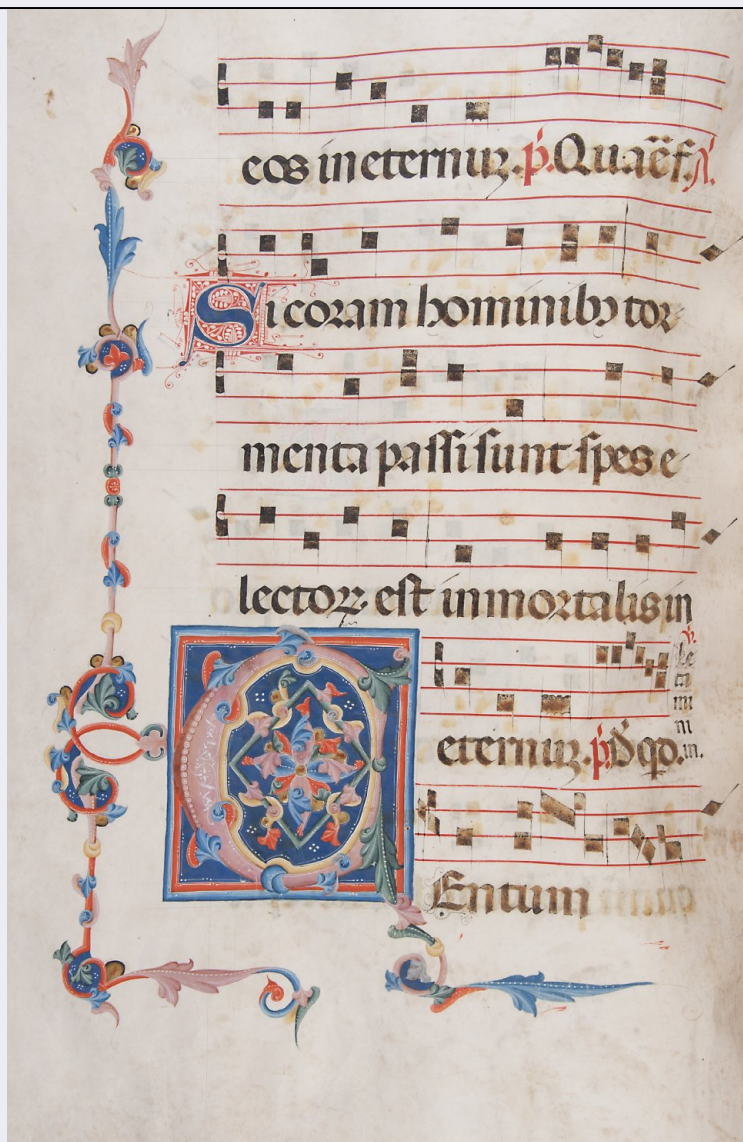 eos in eternuꝫ. p̃. Quaẽf. A.
Si coram hominibꝰ tor
menta passi sunt spes e
lectoꝝ est inmortalis in
eternuꝫ. p̃. D̃ qđ.
Centum